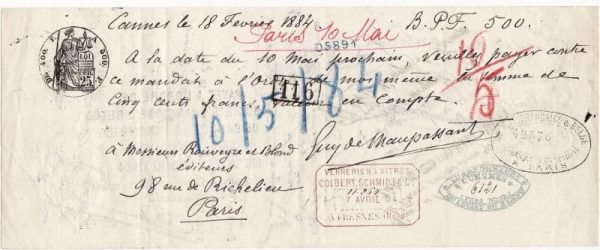 Cannes le 18 Février 1884 B.P.F. 500.
Paris 10 Mai
05891
A la date du 10 Mai prochain, veuillez payer contre
ce mandat à l'Ordre de moi même la somme de
Cinq cents francs, valeur en compte.
1169
10/5/84
Guy de Maupassant
à Messieurs Rouveyre et Blond
éditeurs
98 rue de Richelieu
Paris
VERRERIES & VITRES
COLBERT, SCHMIDT
11.250
7 AVRIL 84
A FRESNES
6121
A PARIS